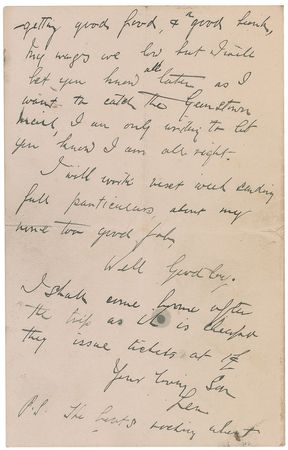 getting good food, & a good bunk,
My wages are low but I will
let you know all later as I
want to catch the Geraldton
mail, I am only writing to let
you know I am all right.
I will write next week sending
full particulars about my
none too good job
Well Goodby.
I shall come home after
the trip as it is cheaper
they issue tickets at
Your loving Son
Len
P.S. The boats rocking about